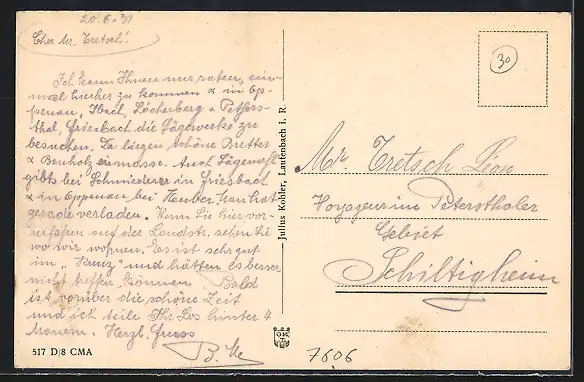 20.6.31
Cher Mr. Tretsch!
Ich kann Ihnen nur raten, ein-
mal hierher zu kommen & in Op-
penau, Ibach, Löcherberg & Peters-
thal, Griesbach die Sägewerke zu
besuchen. Da liegen schöne Bretter
& Bauholz en masse. Auch Sägemehl
gibts bei Schmiederer in Griesbach
& in Oppenau bei Huber. Man hat
gerade verladen. Wenn Sie hier vor-
auf der Landstr. sehen Sie
wo wir wohnen. Es ist sehr gut
im "Kreuz" und hätten es besser
nicht treffen können. Bald
ist vorüber die schöne Zeit
und ich teile Ihr Los hinter 4
Mauern. Herzl. Gruss
B.
517 D/8 CMA
Julius Kohler, Lautenbach i. R.
30
Mr. Tretsch Léon
Voyageur im Petersthaler
Gebiet
Schiltigheim
7606